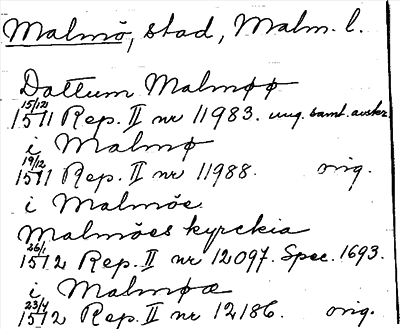 Malmö, stad, Malm. l.
Dattum Malmøø
15/12 1511 Rep. II nr 11983. ung. saml. avskr.
i Malmø
19/12 1511 Rep. II nr 11988. orig.
i Malmöe
Malmöes kyrckia
26/1 1512 Rep. II nr 12097. Spec. 1693.
i Malmøæ
23/4 1512 Rep. II nr 12186. orig.